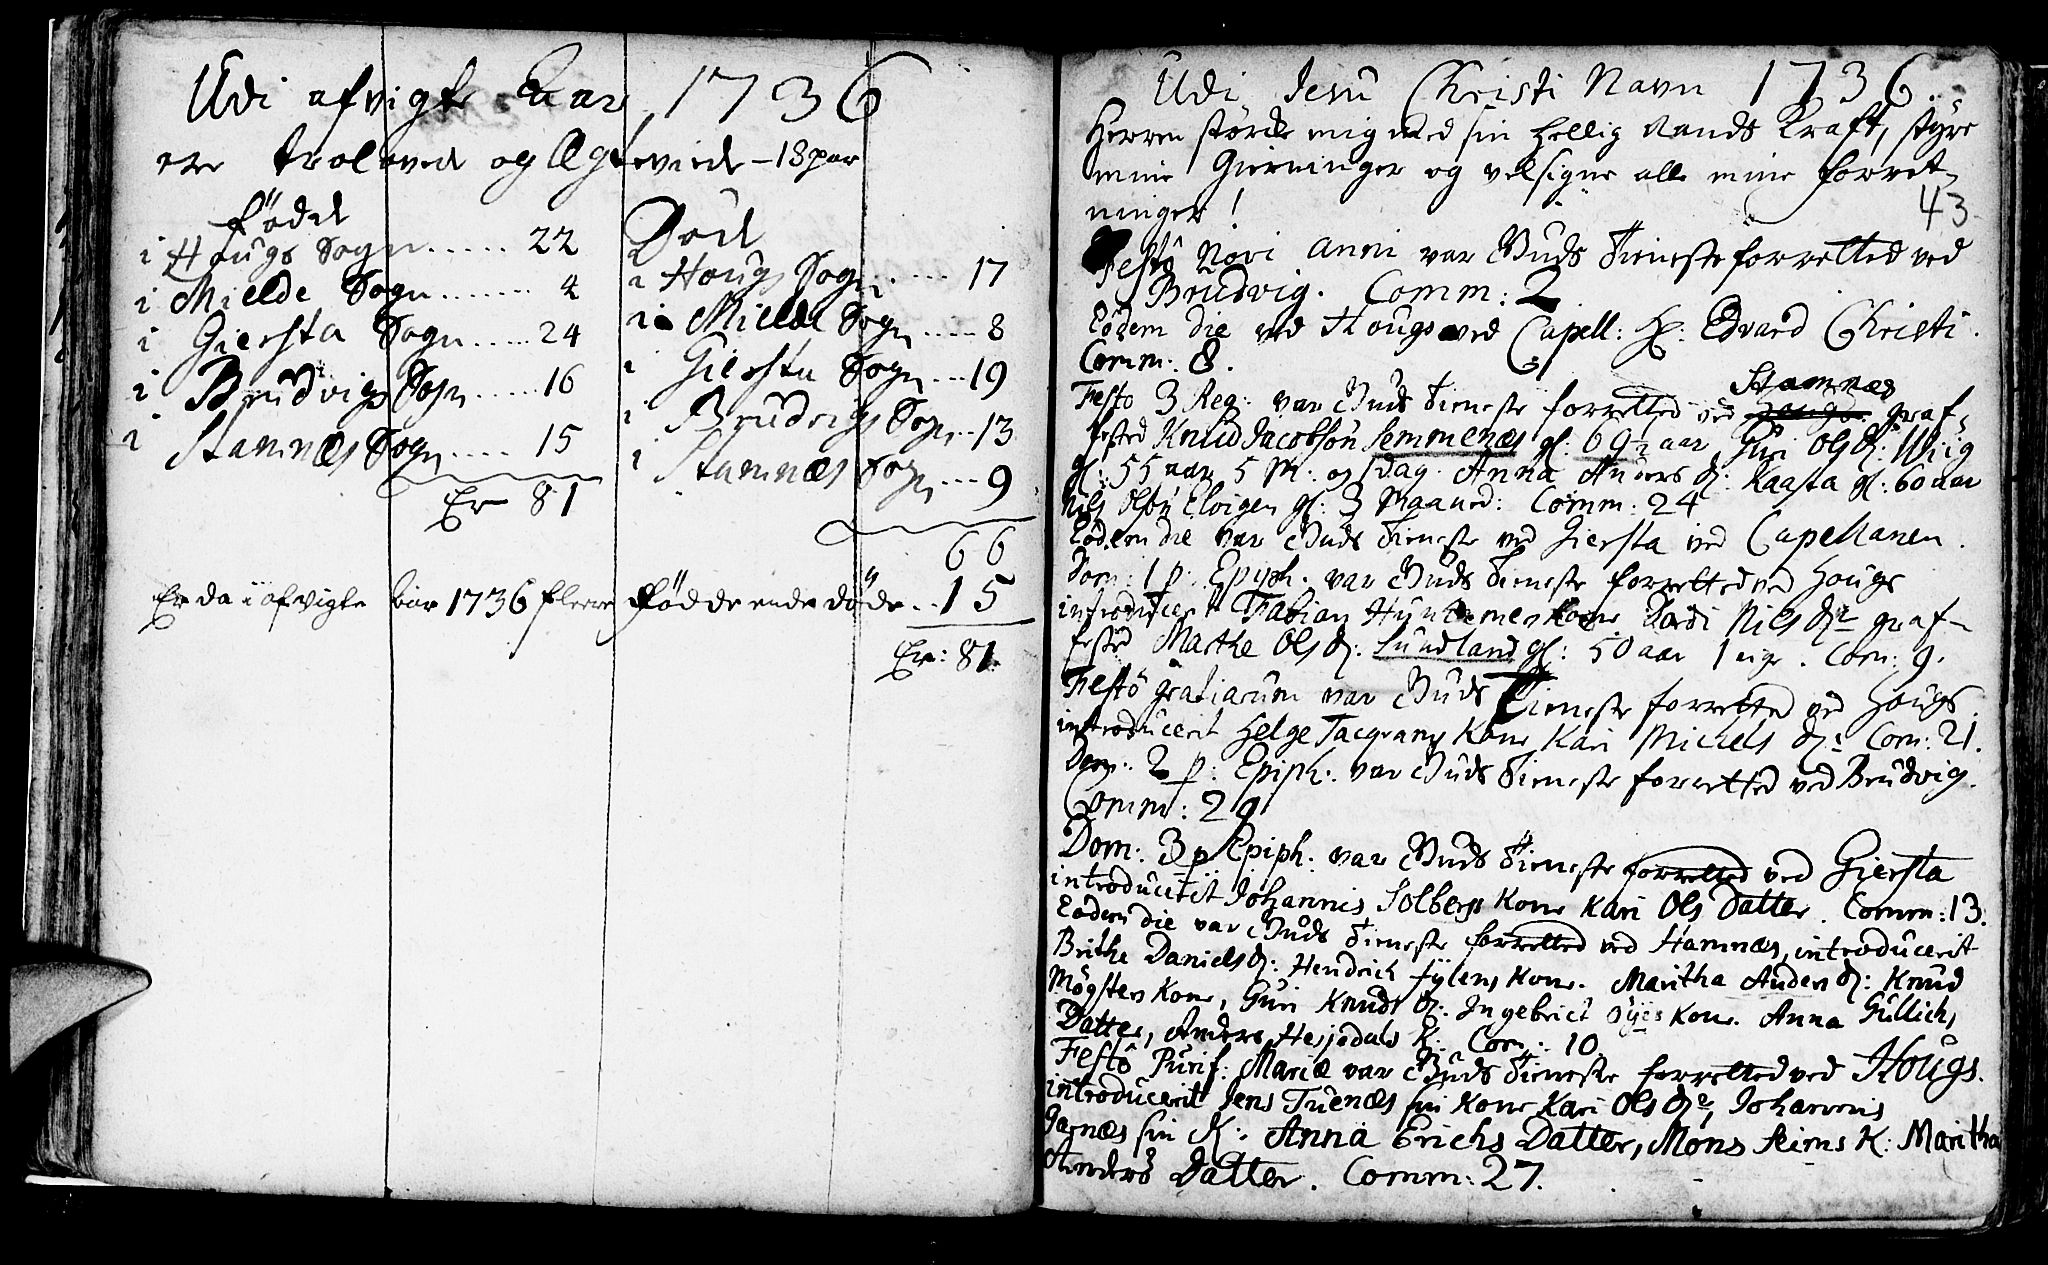 Udi afvigte Aar 1736
ere troloved og Ægteviede - 18 par
födde
i Hougs Sogn ...... 22
i Mielde Sogn ....... 4
i Giersta Sogn ..... 24
i Brudvigs Sogn ..... 16
i Stamnæs Sogn .... 15
Er 81
Död
i Houg Sogn ..... 17
i Mielde Sogn .... 8
i Giersta Sogn ... 19
i Brudvigs Sogn .. 13
i Stamnæs Sogn ... 9
66
Er da i afvigte Aar 1736 fleere födde ende döde .. 15
Er: 81.
Udi Jesu Christi Navn 1736.
Herren störke mig med sin hellig Aands Kraft, styre
mine Gierninger og velsigne alle mine forret-
ninger!
43
Festo Novi anni var Guds Tieneste forretted ved
Brudvig. Comm: 2
Eodem die ved Hougs ved Capell: Hr: Edvard Christi.
Comm: 8.
Stamnæs
Festo 3 Reg: var Guds Tieneste forretted ved graf-
fested Knud Jacobsön Semmenæs gl. 69 aar, Guri Ols D: Wiig
gl: 55 aar 5 M. og 1 dag. Anna Anders D: Kaasta gl: 60 aar
Nils Olsön Elvigen gl: 3 Maaned: Comm: 24
Eodem die var Guds Tieneste ved Giersta ved Capellanen.
Dom: 1 p. Epiph. var Guds Tieneste forretted ved Hougs
introducerit Fabian Kone Nils Dr graf-
fested Marthe Ols D: Lundland gl: 50 aar 1 uge. Com: 9.
Festo gratiarum var Guds Tieneste forretted ved Hougs.
introducerit Helge Tacqvams Kone Kari Michels D: Com: 21.
Dom: 2 p: Epiph: var Guds Tieneste forretted ved Brudvig.
Comm: 29
Dom: 3 p Epiph: var Guds Tieneste forretted ved Giersta
introducerit Johannis Solbergs Kone Kari Ols Datter. Comm: 13.
Eodem die var Guds Tieneste forretted ved Stamnæs, introducerit
Brithe Daniels D: Hendrich Fylens Kone. Maritha Anders D: Knud
Mögsters Kone, Guri Knuds D. Ingebrict Öyes Kone. Anna Gullichs
Datter, Anders Hesjedals K: Com: 10.
Festo Purif: Mariæ var Guds Tieneste forretted ved Hougs.
introducerit Jens Tuenæs sin Kone Kari Ols Dr, Johannis
Garnæs sin K: Anna Erichs Datter, Mons Seims K: Maritha
Anders Datter. Comm: 27.